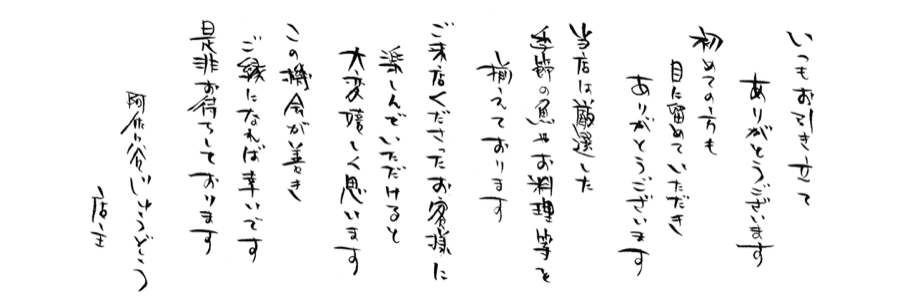 いつもお引き立て
ありがとうございます
初めての方も
目に留めていただき
ありがとうございます
当店は厳選した
季節の魚やお料理等を
揃えております
ご来店くださったお客様に
楽しんでいただけると
大変嬉しく思います
この機会が善き
ご縁になれば幸いです
是非お待ちしております
阿佐ヶ谷じゅうどう
店主